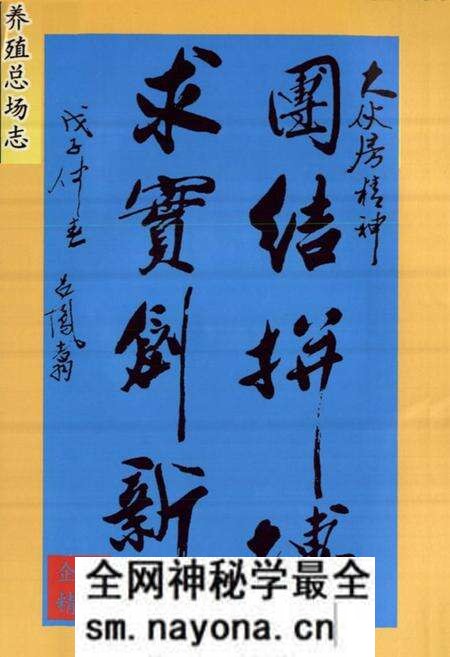 养殖总场志
大伙房精神
團结拼搏
求實創新
戊子仲春 吕鳳翥
企
精
全网神秘学最全
sm.nayona.cn